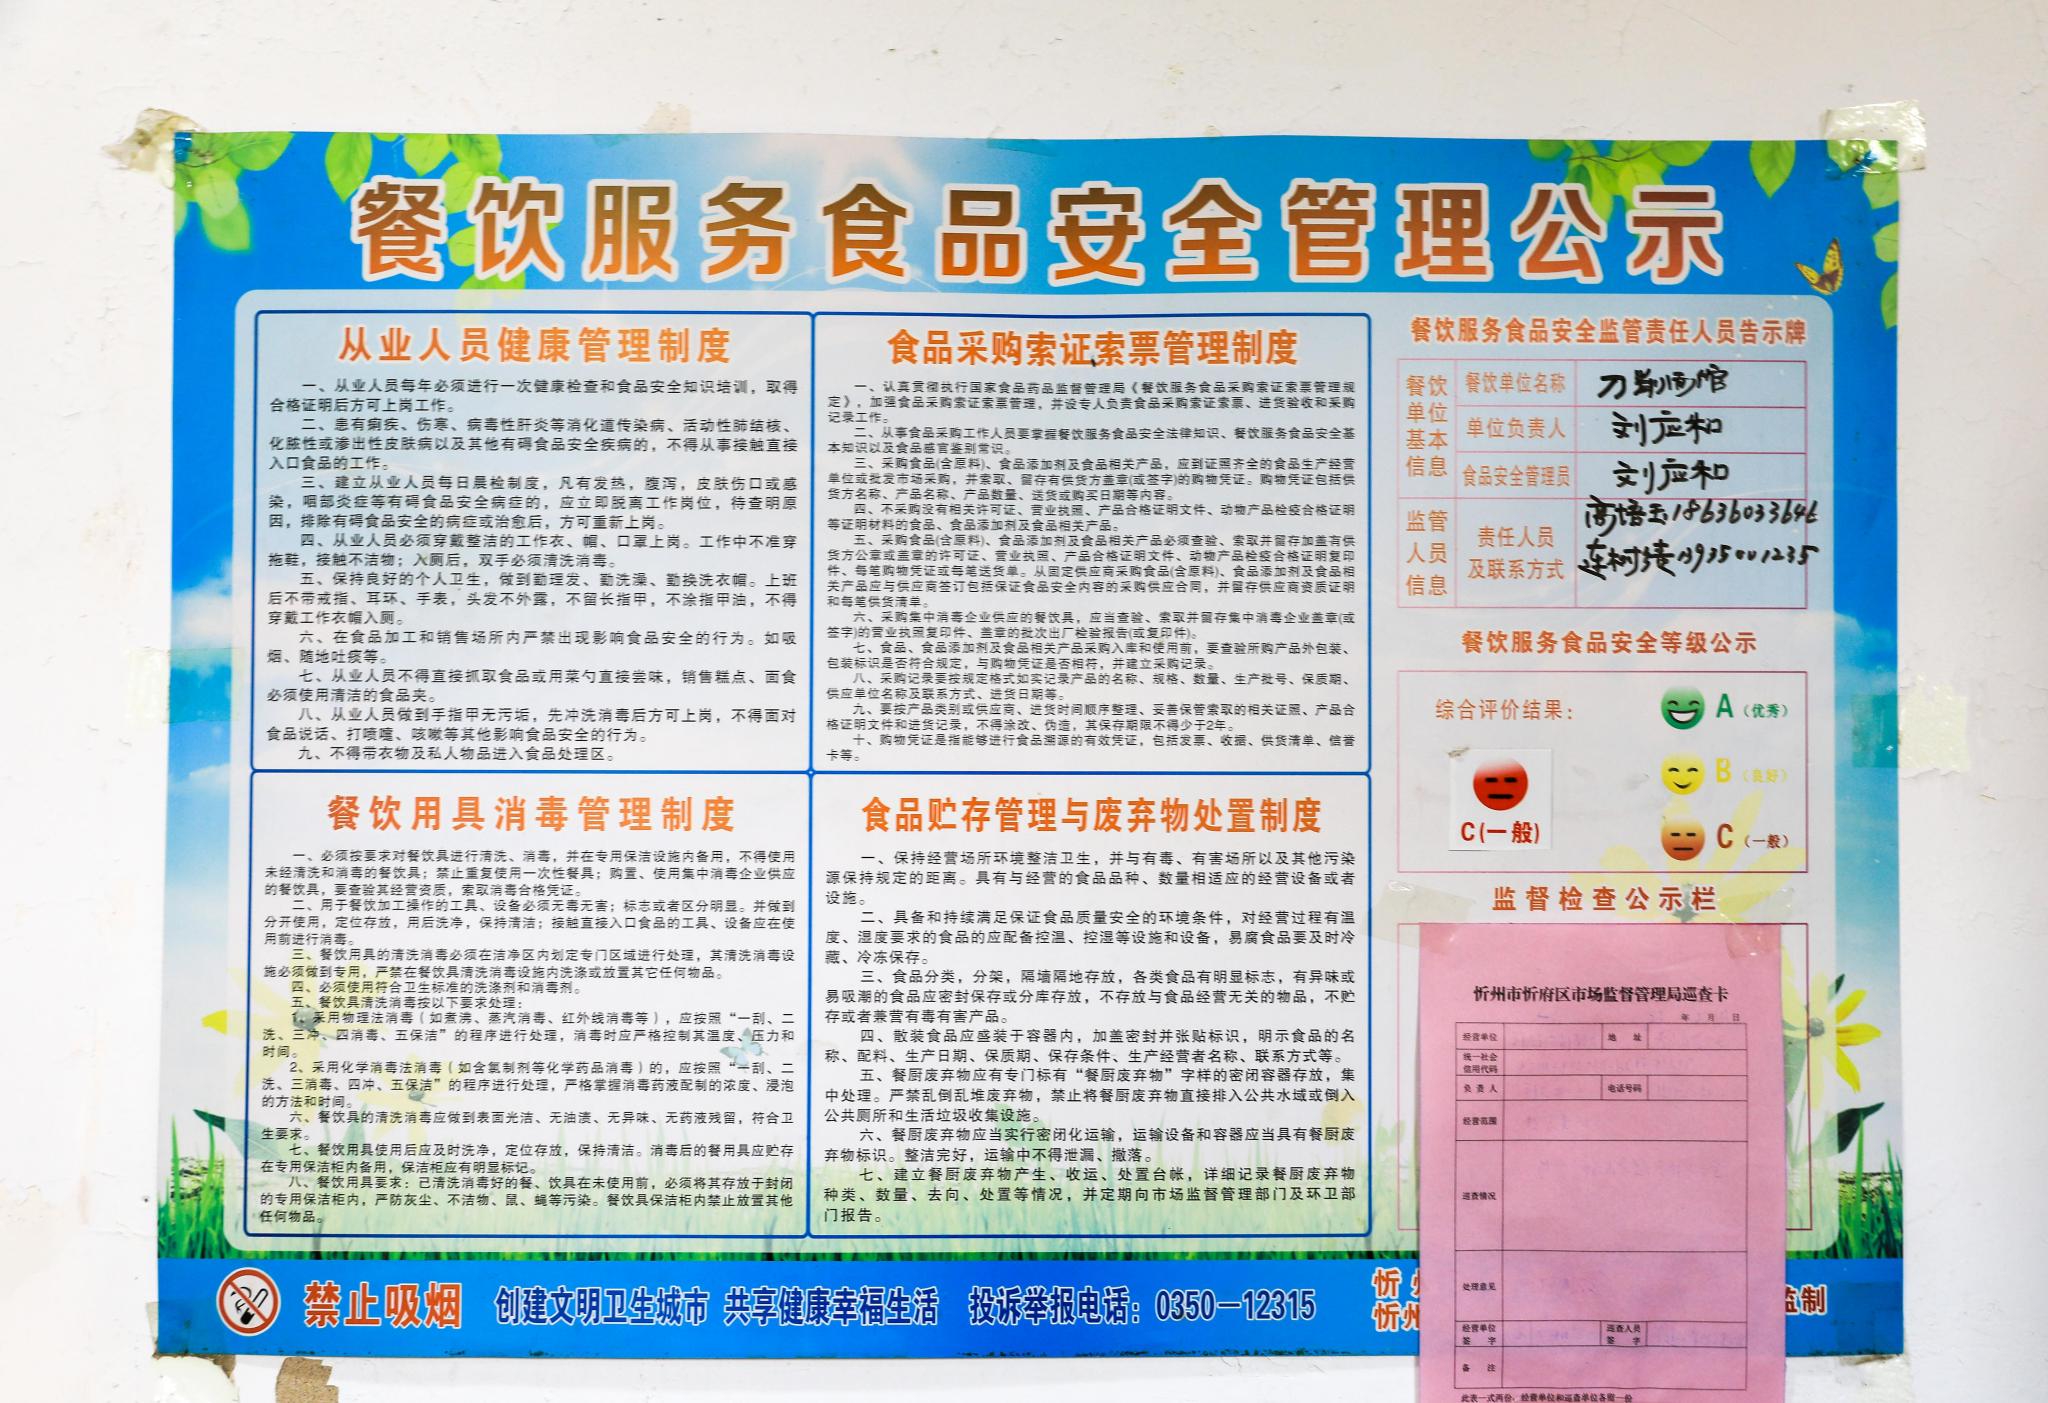 餐饮服务食品安全管理公示
从业人员健康管理制度
一、从业人员每年必须进行一次健康检查和食品安全知识培训，取得
合格证明后方可上岗工作。
二、患有痢疾、伤寒、病毒性肝炎等消化道传染病、活动性肺结核、
化脓性或渗出性皮肤病以及其他有碍食品安全疾病的，不得从事接触直接
入口食品的工作。
三、建立从业人员每日晨检制度，凡有发热，腹泻，皮肤伤口或感
染，咽部炎症等有碍食品安全病症的，应立即脱离工作岗位，待查明原
因，排除有碍食品安全的病症或治愈后，方可重新上岗。
四、从业人员必须穿戴整洁的工作衣、帽、口罩上岗。工作中不准穿
拖鞋，接触不洁物；入厕后，双手必须清洗消毒。
五、保持良好的个人卫生，做到勤理发、勤洗澡、勤换洗衣帽。上班
后不带戒指、耳环、手表，头发不外露，不留长指甲，不涂指甲油，不得
穿戴工作衣帽入厕。
六、在食品加工和销售场所内严禁出现影响食品安全的行为。如吸
烟、随地吐痰等。
七、从业人员不得直接抓取食品或用菜勺直接尝味，销售糕点、面食
必须使用清洁的食品夹。
八、从业人员做到手指甲无污垢，先冲洗消毒后方可上岗，不得面对
食品说话、打喷嚏、咳嗽等其他影响食品安全的行为。
九、不得带衣物及私人物品进入食品处理区。
食品采购索证索票管理制度
一、认真贯彻执行国家食品药品监督管理局《餐饮服务食品采购索证索票管理规
定》，加强食品采购索证索票管理，并设专人负责食品采购索证索票、进货验收和采购
记录工作。
二、从事食品采购工作人员要掌握餐饮服务食品安全法律知识、餐饮服务食品安全基
本知识以及食品感官鉴别常识。
三、采购食品(含原料)、食品添加剂及食品相关产品，应到证照齐全的食品生产经营
单位或批发市场采购，并索取、留存有供货方盖章(或签字)的购物凭证。购物凭证包括供
货方名称、产品名称、产品数量、送货或购买日期等内容。
四、不采购没有相关许可证、营业执照、产品合格证明文件、动物产品检疫合格证明
等证明材料的食品、食品添加剂及食品相关产品。
五、采购食品(含原料)、食品添加剂及食品相关产品必须查验、索取并留存加盖有供
货方公章或盖章的许可证、营业执照、产品合格证明文件、动物产品检疫合格证明复印
件、每笔购物凭证或每笔送货单。从固定供应商采购食品(含原料)、食品添加剂及食品相
关产品应与供应商签订包括保证食品安全内容的采购供应合同，并留存供应商资质证明
和每笔供货清单。
六、采购集中消毒企业供应的餐饮具，应当查验、索取并留存集中消毒企业盖章(或
签字)的营业执照复印件、盖章的批次出厂检验报告(或复印件)。
七、食品、食品添加剂及食品相关产品采购入库和使用前，要查验所购产品外包装、
包装标识是否符合规定，与购物凭证是否相符，并建立采购记录。
八、采购记录要按规定格式如实记录产品的名称、规格、数量、生产批号、保质期、
供应单位名称及联系方式、进货日期等。
九、要按产品类别或供应商、进货时间顺序整理、妥善保管索取的相关证照、产品合
格证明文件和进货记录，不得涂改、伪造，其保存期限不得少于2年。
十、购物凭证是指能够进行食品溯源的有效凭证，包括发票、收据、供货清单、信誉
卡等。
餐饮用具消毒管理制度
一、必须按要求对餐饮具进行清洗、消毒，并在专用保洁设施内备用，不得使用
未经清洗和消毒的餐饮具；禁止重复使用一次性餐具；购置、使用集中消毒企业供应
的餐饮具，要查验其经营资质，索取消毒合格凭证。
二、用于餐饮加工操作的工具、设备必须无毒无害；标志或者区分明显。并做到
分开使用，定位存放，用后洗净，保持清洁；接触直接入口食品的工具、设备应在使
用前进行消毒。
三、餐饮用具的清洗消毒必须在洁净区内划定专门区域进行处理，其清洗消毒设
施必须做到专用，严禁在餐饮具清洗消毒设施内洗涤或放置其它任何物品。
四、必须使用符合卫生标准的洗涤剂和消毒剂。
五、餐饮具清洗消毒按以下要求处理：
1、采用物理法消毒（如煮沸、蒸汽消毒、红外线消毒等），应按照“一刮、二
洗、三冲、四消毒、五保洁”的程序进行处理，消毒时应严格控制其温度、压力和
时间。
2、采用化学消毒法消毒（如含氯制剂等化学药品消毒）的，应按照“一刮、二
洗、三消毒、四冲、五保洁”的程序进行处理，严格掌握消毒药液配制的浓度、浸泡
的方法和时间。
六、餐饮具的清洗消毒应做到表面光洁、无油渍、无异味、无药液残留，符合卫
生要求。
七、餐饮用具使用后应及时洗净，定位存放，保持清洁。消毒后的餐用具应贮存
在专用保洁柜内备用，保洁柜应有明显标记。
八、餐饮用具要求：已清洗消毒好的餐、饮具在未使用前，必须将其存放于封闭
的专用保洁柜内，严防灰尘、不洁物、鼠、蝇等污染。餐饮具保洁柜内禁止放置其他
任何物品。
食品贮存管理与废弃物处置制度
一、保持经营场所环境整洁卫生，并与有毒、有害场所以及其他污染
源保持规定的距离。具有与经营的食品品种、数量相适应的经营设备或者
设施。
二、具备和持续满足保证食品质量安全的环境条件，对经营过程有温
度、湿度要求的食品的应配备控温、控湿等设施和设备，易腐食品要及时冷
藏、冷冻保存。
三、食品分类，分架，隔墙隔地存放，各类食品有明显标志，有异味或
易吸潮的食品应密封保存或分库存放，不存放与食品经营无关的物品，不贮
存或者兼营有毒有害产品。
四、散装食品应盛装于容器内，加盖密封并张贴标识，明示食品的名
称、配料、生产日期、保质期、保存条件、生产经营者名称、联系方式等。
五、餐厨废弃物应有专门标有“餐厨废弃物”字样的密闭容器存放，集
中处理。严禁乱倒乱堆废弃物，禁止将餐厨废弃物直接排入公共水域或倒入
公共厕所和生活垃圾收集设施。
六、餐厨废弃物应当实行密闭化运输，运输设备和容器应当具有餐厨废
弃物标识。整洁完好，运输中不得泄漏、撒落。
七、建立餐厨废弃物产生、收运、处置台帐，详细记录餐厨废弃物
种类、数量、去向、处置等情况，并定期向市场监督管理部门及环卫部
门报告。
餐饮服务食品安全监管责任人员告示牌
餐饮单位基本信息
餐饮单位名称 刀削面馆
单位负责人 刘应和
食品安全管理员 刘应和
监管人员信息
责任人员
及联系方式
高培玉18636033646
餐饮服务食品安全等级公示
综合评价结果：
A（优秀）
B（良好）
C（一般）
C(一般)
监督检查公示栏
忻州市忻府区市场监督管理局巡查卡
年 月 日
经营单位 地 址
统一社会
信用代码
负责人 电话号码
经营范围
巡查情况
处理意见
经营单位
签 字
巡查人员
签 字
备 注
此表一式两份，经营单位和巡查单位各留一份
禁止吸烟 创建文明卫生城市 共享健康幸福生活 投诉举报电话：0350－12315
忻州
忻州
监制